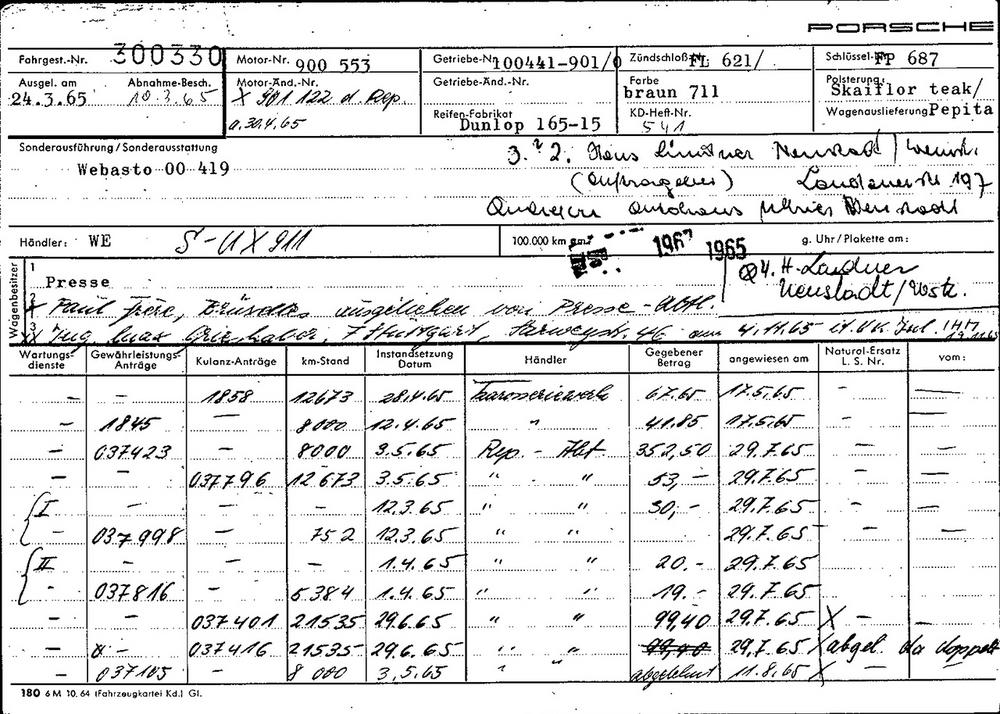 PORSCHE
Fahrgest.-Nr. 300330 Motor-Nr. 900 553 Getriebe-Nr. 100441-901/0 Zündschloß FL 621/ Schlüssel- FP 687
Ausgel. am 24.3.65 Abnahme-Besch. 10.3.65 Motor-Änd.-Nr. X 901 122 d. Rep. a. 30.4.65 Getriebe-Änd.-Nr. Farbe braun 711 Polsterung: Skaiflor teak/
Reifen-Fabrikat Dunlop 165-15 KD-Heft-Nr. 541 Wagenauslieferung Pepita
Sonderausführung/Sonderausstattung
Webasto 00 419
3. 2. Hans Lindner Neustadt/Weinstr.
(Auftraggeber) Landauerstr 197
Neustadt
Händler: WE S-UX 911 100.000 km am: 1967 1965 g. Uhr/Plakette am:
Wagenbesitzer
1 Presse
4. H. Neustadt/Wstr.
2 Paul Frère, Brüssel, ausgeliehen von Presse-Abtl.
3 Ing. Stuttgart, 46 am 4.11.65
Wartungsdienste Gewährleistungs-Anträge Kulanz-Anträge km-Stand Instandsetzung Datum Händler Gegebener Betrag angewiesen am Natural-Ersatz L. S. Nr. vom:
– – 1858 12673 28.4.65 Karosseriewerk 67.65 17.5.65 – –
– 1845 – 8000 12.4.65 " 41.85 17.5.65 – –
– 037423 – 8000 3.5.65 Rep. - Abt. 352,50 29.7.65 – –
– – 037796 12673 3.5.65 " " 53,– 29.7.65 – –
I – – – 12.3.65 " " 30,– 29.7.65 – –
– 037998 – 752 12.3.65 " " 29.7.65 – –
II – – – 1.4.65 " " 20.– 29.7.65
– 037816 – 5384 1.4.65 " " 19.– 29.7.65
037401 21535 29.6.65 " " 99,40 29.7.65 X – –
– 037416 21535 29.6.65 " " 99,40 29.7.65 X abgel. da doppelt
037105 – 8000 3.5.65 " " abgelehnt 11.8.65 X –
180 6 M 10. 64 (Fahrzeugkartei Kd.) Gl.